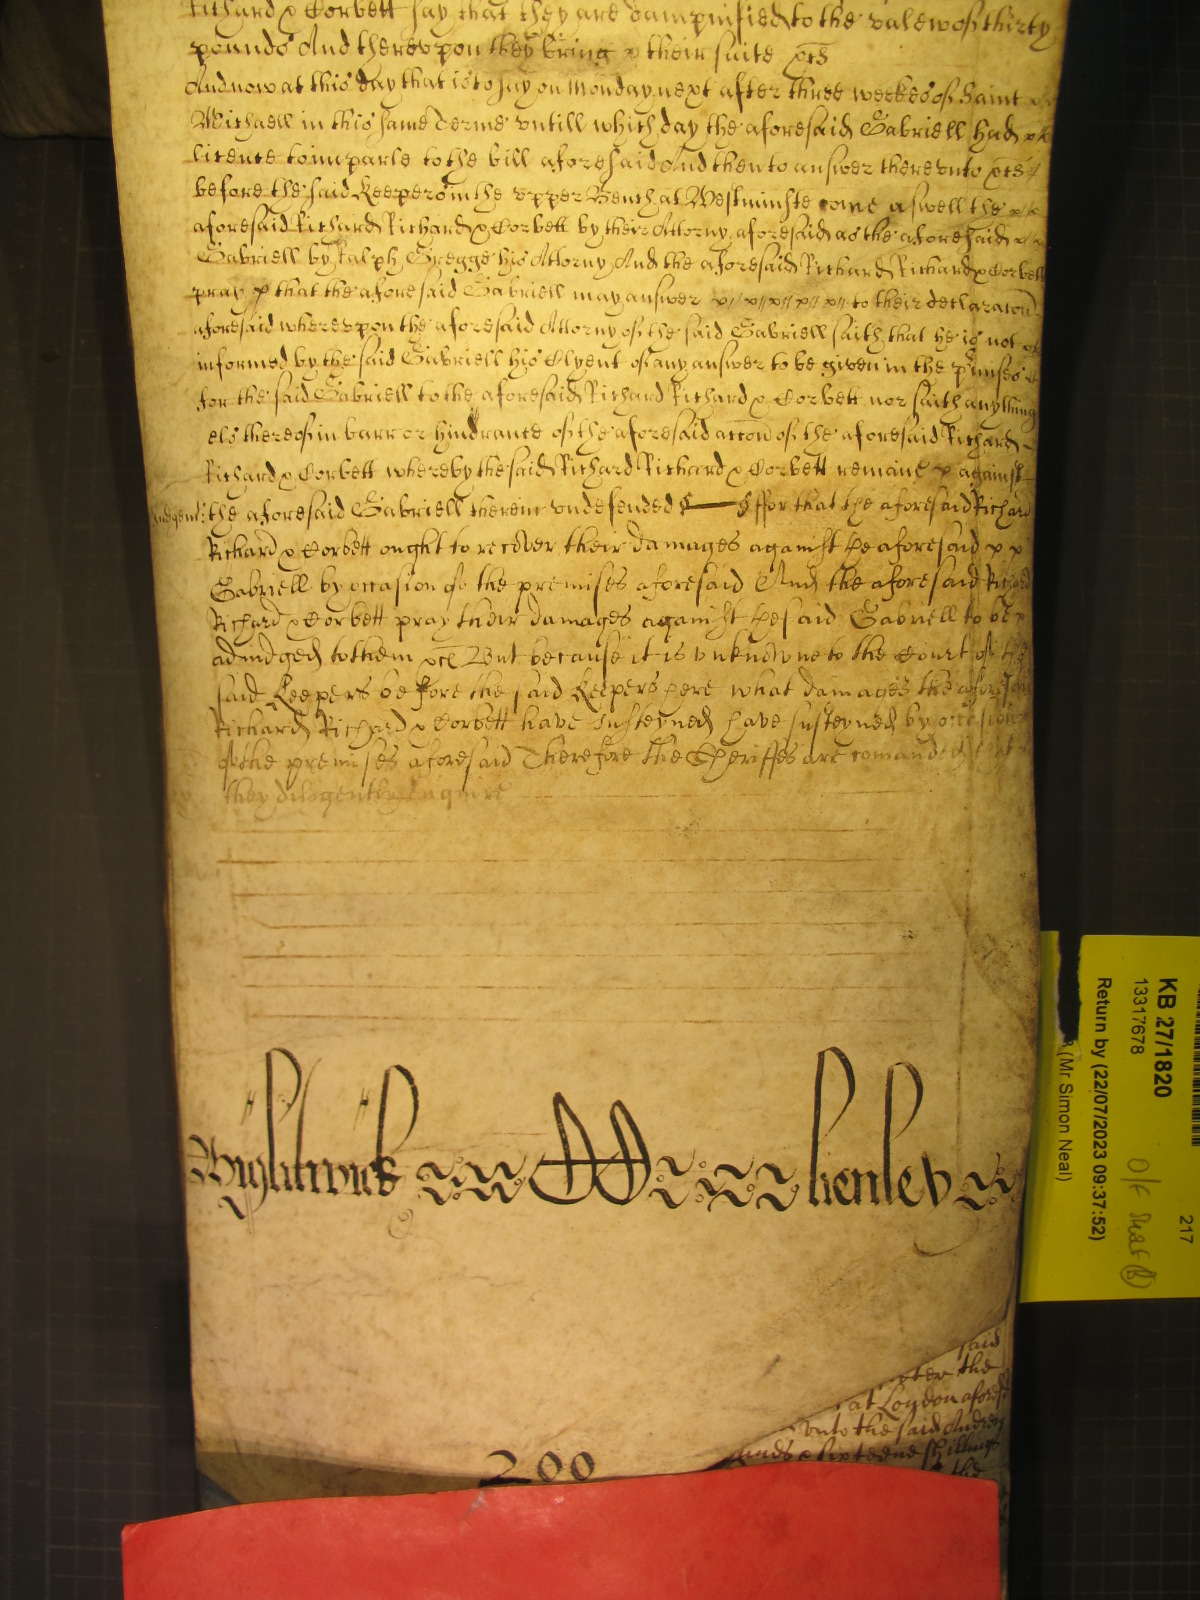 Richard & Corbett say that they are dampnified to the valew of thirty
pounds And thereupon they bring & their suite &cs
And now at this day that is to say on Monday next after three weekes of Saint
Michaell in this same Terme untill which day the aforesaid Gabriell had
licence to imparle to the bill aforesaid And then to answer thereunto &cs
before the said Keepers in the upper Bench at Westminste come aswell the
aforesaid Richard Richard & Corbett by their Attorny aforesaid as the aforesaid
Gabriell by Ralph Gregge his Attorny And the aforesaid Richard Richard & Corbett
pray that the aforesaid Gabriell may answer to their declaracon
aforesaid whereupon the aforesaid Attorny of the said Gabriell saith that he is not
informed by the said Gabriell his Clyent of any answer to be given in the pmisses
for the said Gabriell to the aforesaid Richard Richard & Corbett nor saith anything
els thereof in barr or hindrance of the aforesaid accon of the aforesaid Richard
Richard & Corbett whereby the said Richard Richard & Corbett remaine against
Judgent: the aforesaid Gabriell therein undefended ffor that the aforesaid Richard
Richard & Corbett ought to recover their damages against the aforesaid
Gabriell by occasion of the premises aforesaid And the aforesaid Richard
Richard & Corbett pray their damages against the said Gabriell to be
adiudged to them &ce But because it is unknowne to the Court of the
said Keepers before the said Keepers here what damages the aforesaid
Richard Richard & Corbett have susteyned have susteyned by occasion
of the premises aforesaid Therefore the Sheriffes are comanded that
they diligently enquire
Wightwick W henley
said
the
at London aforesd
unto the said Andrew
& sixteene shillings
the
200
KB 27/1820
13317678
Return by (22/07/2023 09:37:52)
(Mr Simon Neal)
217